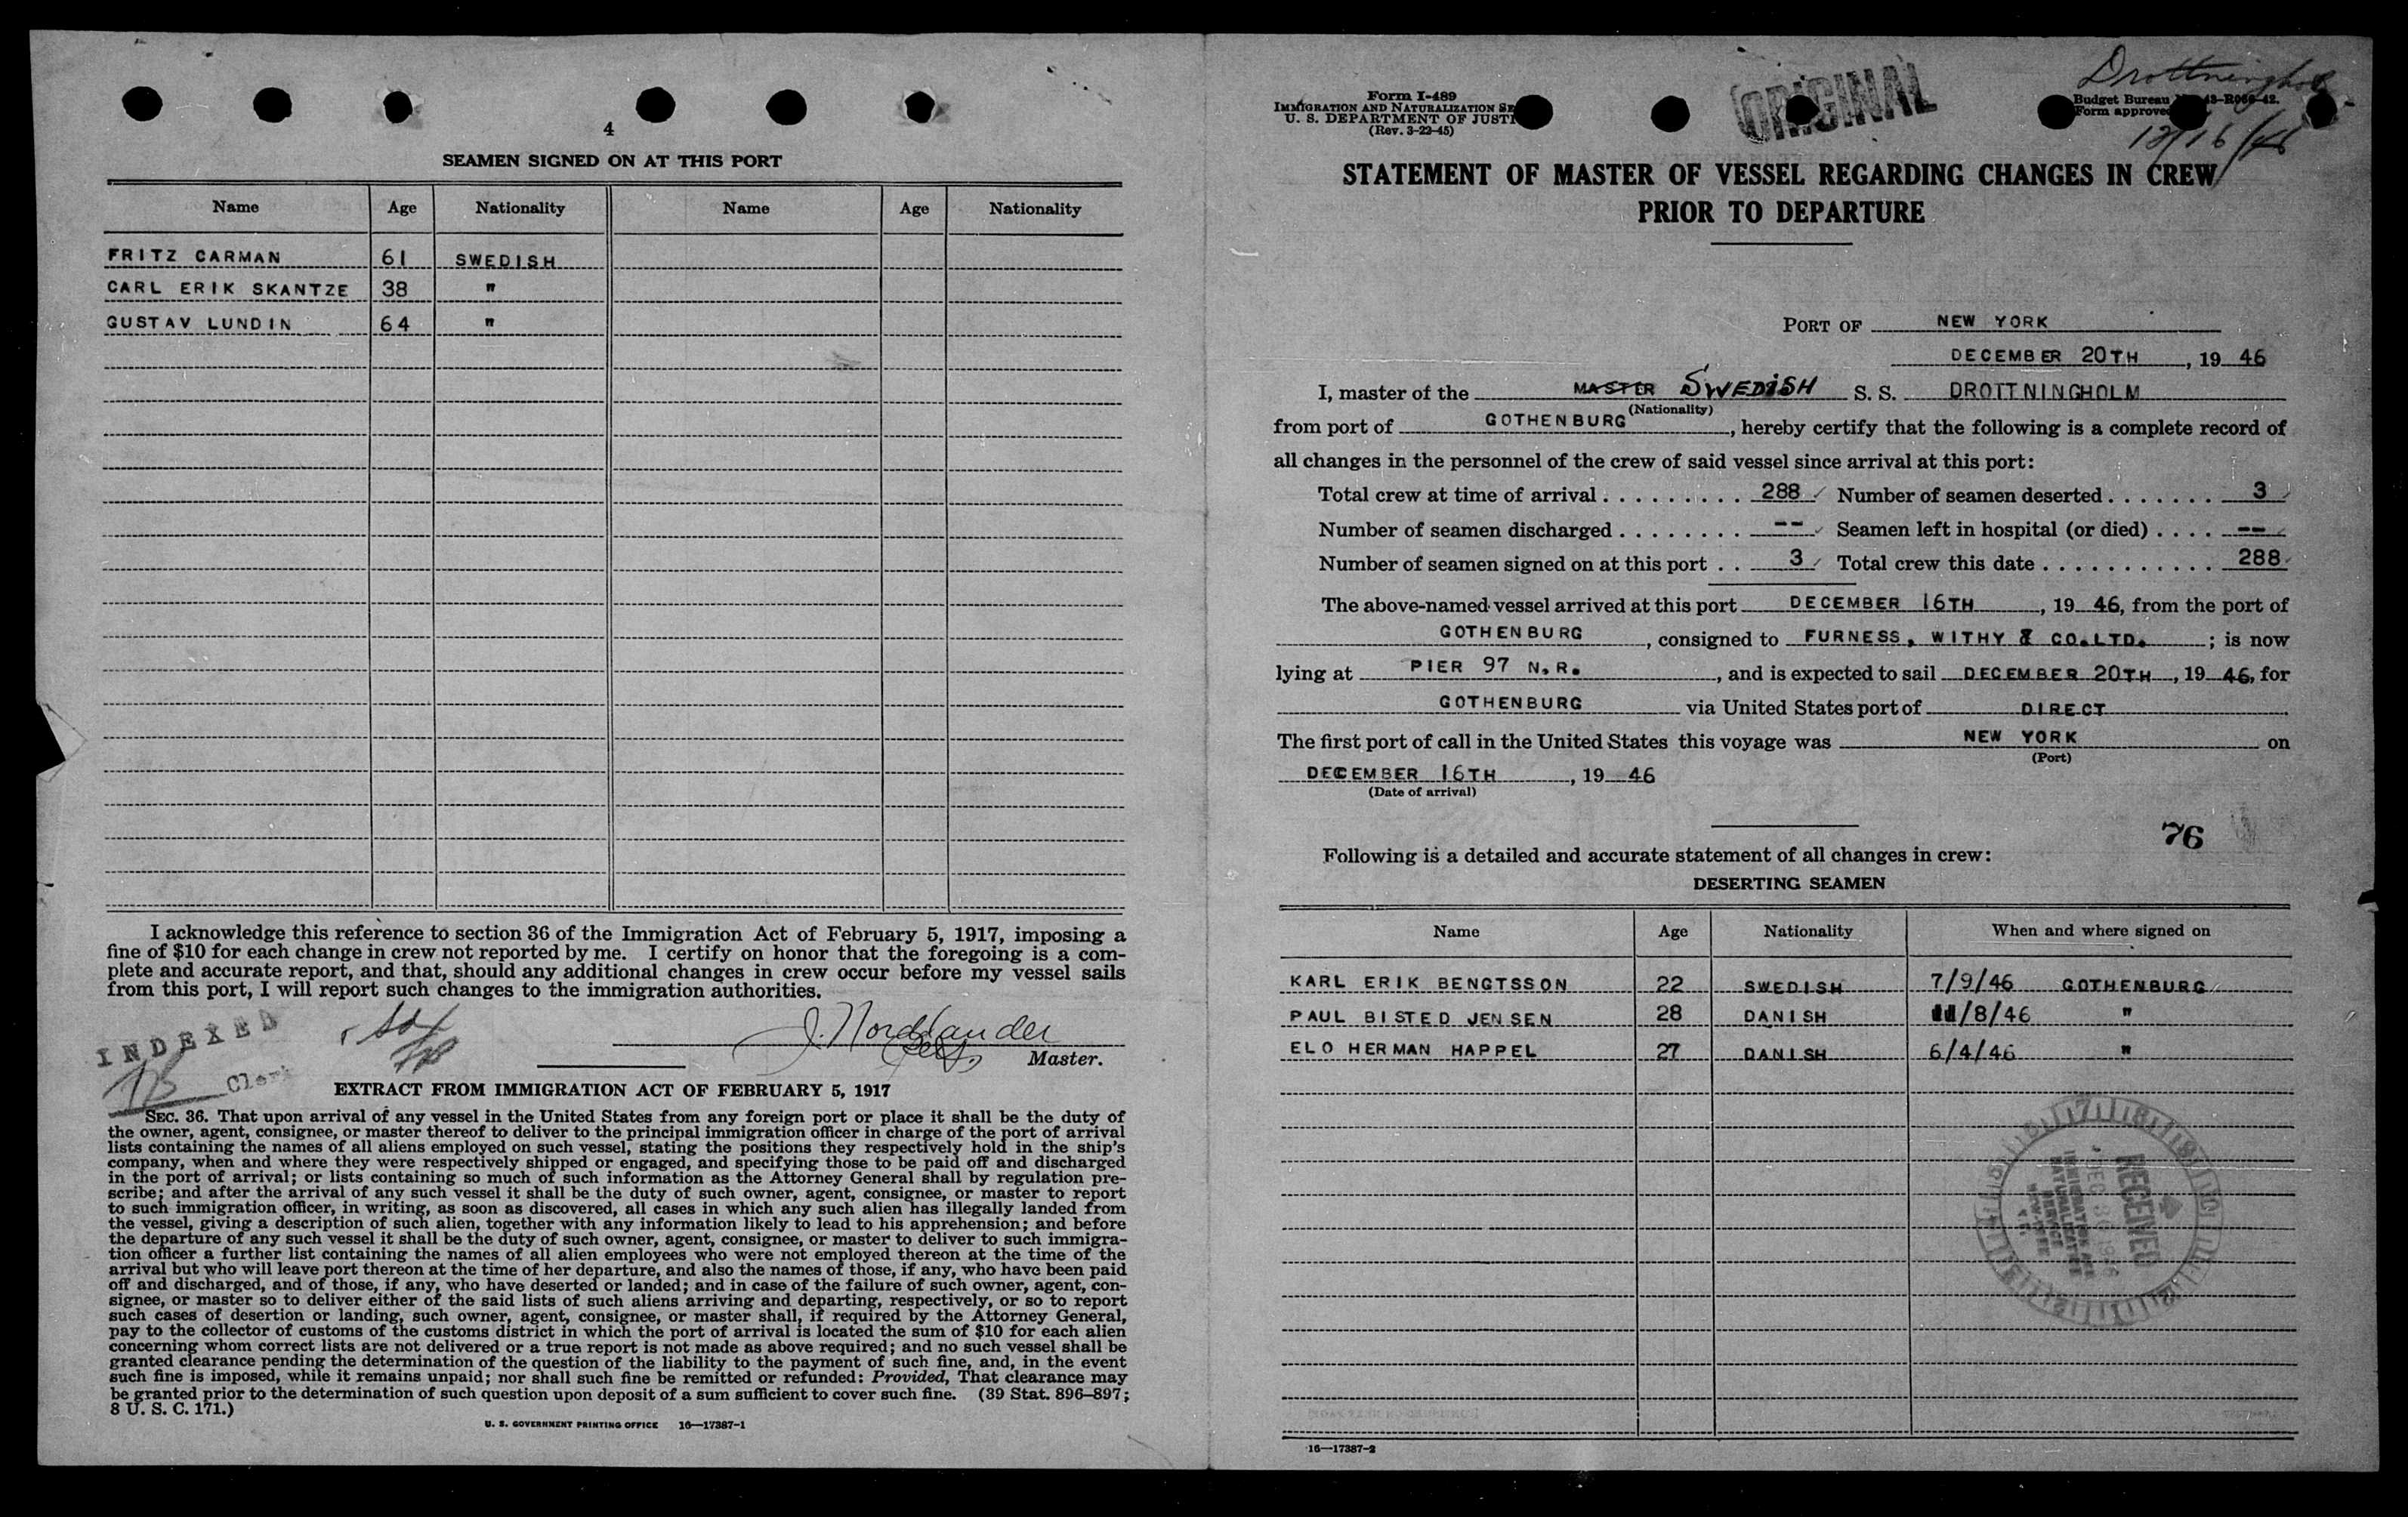 4
SEAMEN SIGNED ON AT THIS PORT
Name Age Nationality Name Age Nationality
FRITZ CARMAN 61 SWEDISH
CARL ERIK SKANTZE 38 "
GUSTAV LUNDIN 64 "
I acknowledge this reference to section 36 of the Immigration Act of February 5, 1917, imposing a
fine of $10 for each change in crew not reported by me. I certify on honor that the foregoing is a com-
plete and accurate report, and that, should any additional changes in crew occur before my vessel sails
from this port, I will report such changes to the immigration authorities.
INDEXED
J. Nordlander
Master.
Clerk
EXTRACT FROM IMMIGRATION ACT OF FEBRUARY 5, 1917
SEC. 36. That upon arrival of any vessel in the United States from any foreign port or place it shall be the duty of
the owner, agent, consignee, or master thereof to deliver to the principal immigration officer in charge of the port of arrival
lists containing the names of all aliens employed on such vessel, stating the positions they respectively hold in the ship's
company, when and where they were respectively shipped or engaged, and specifying those to be paid off and discharged
in the port of arrival; or lists containing so much of such information as the Attorney General shall by regulation pre-
scribe; and after the arrival of any such vessel it shall be the duty of such owner, agent, consignee, or master to report
to such immigration officer, in writing, as soon as discovered, all cases in which any such alien has illegally landed from
the vessel, giving a description of such alien, together with any information likely to lead to his apprehension; and before
the departure of any such vessel it shall be the duty of such owner, agent, consignee, or master to deliver to such immigra-
tion officer a further list containing the names of all alien employees who were not employed thereon at the time of the
arrival but who will leave port thereon at the time of her departure, and also the names of those, if any, who have been paid
off and discharged, and of those, if any, who have deserted or landed; and in case of the failure of such owner, agent, con-
signee, or master so to deliver either of the said lists of such aliens arriving and departing, respectively, or so to report
such cases of desertion or landing, such owner, agent, consignee, or master shall, if required by the Attorney General,
pay to the collector of customs of the customs district in which the port of arrival is located the sum of $10 for each alien
concerning whom correct lists are not delivered or a true report is not made as above required; and no such vessel shall be
granted clearance pending the determination of the question of the liability to the payment of such fine, and, in the event
such fine is imposed, while it remains unpaid; nor shall such fine be remitted or refunded: Provided, That clearance may
be granted prior to the determination of such question upon deposit of a sum sufficient to cover such fine. (39 Stat. 896–897;
8 U. S. C. 171.)
U. S. GOVERNMENT PRINTING OFFICE 16—17387-1
Form I-489
IMMIGRATION AND NATURALIZATION
U. S. DEPARTMENT OF
(Rev. 3-22-45)
ORIGINAL
Drottningholm
Budget Bureau
Form approved
12/16/46
STATEMENT OF MASTER OF VESSEL REGARDING CHANGES IN CREW
PRIOR TO DEPARTURE
PORT OF NEW YORK
DECEMBER 20TH, 19 46
I, master of the MASTER SWEDISH S. S. DROTTNINGHOLM
(Nationality)
from port of GOTHENBURG, hereby certify that the following is a complete record of
all changes in the personnel of the crew of said vessel since arrival at this port:
Total crew at time of arrival . . . . . . . . . 288 Number of seamen deserted . . . . . . . 3
Number of seamen discharged . . . . . . . . -- Seamen left in hospital (or died) . . . . --
Number of seamen signed on at this port . . 3 Total crew this date . . . . . . . . . . . 288
The above-named vessel arrived at this port DECEMBER 16TH, 19 46, from the port of
GOTHENBURG, consigned to FURNESS, WITHY & CO.LTD. ; is now
lying at PIER 97 N.R. , and is expected to sail DECEMBER 20TH, 19 46, for
GOTHENBURG via United States port of DIRECT
The first port of call in the United States this voyage was NEW YORK on
(Port)
DECEMBER 16TH, 19 46
(Date of arrival)
76
Following is a detailed and accurate statement of all changes in crew:
DESERTING SEAMEN
Name Age Nationality When and where signed on
KARL ERIK BENGTSSON 22 SWEDISH 7/9/46 GOTHENBURG
PAUL BISTED JENSEN 28 DANISH 11/8/46 "
ELO HERMAN HAPPEL 27 DANISH 6/4/46 "
RECEIVED
DEC 30 1946
IMMIGRATION AND
NATURALIZATION
SERVICE
NEW YORK
16—17387-2